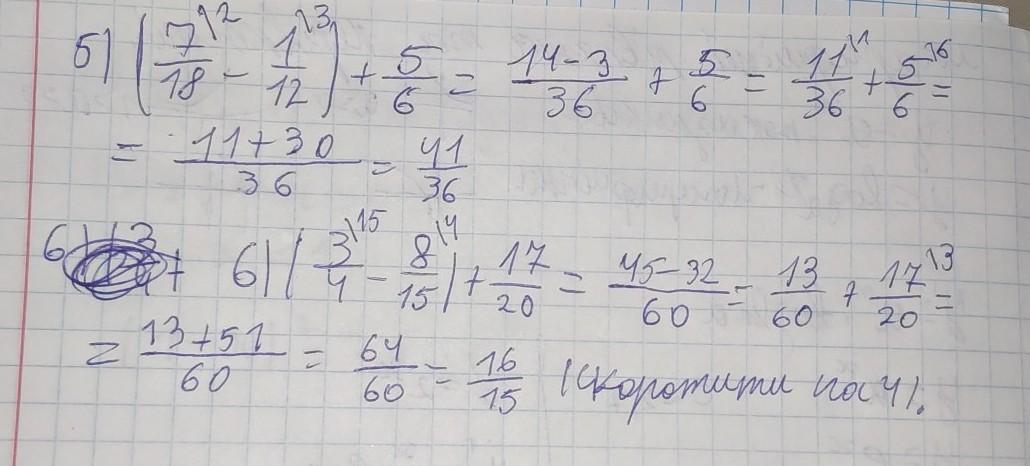 5) (7/18 \2 - 1/12 \3) + 5/6 = 14-3/36 + 5/6 = 11/36 \1 + 5/6 \6 =
= 11+30/36 = 41/36
6) (3/4 \15 - 8/15 \4) + 17/20 = 45-32/60 = 13/60 + 17/20 \3 =
= 13+51/60 = 64/60 = 16/15 (скоротити на 4).